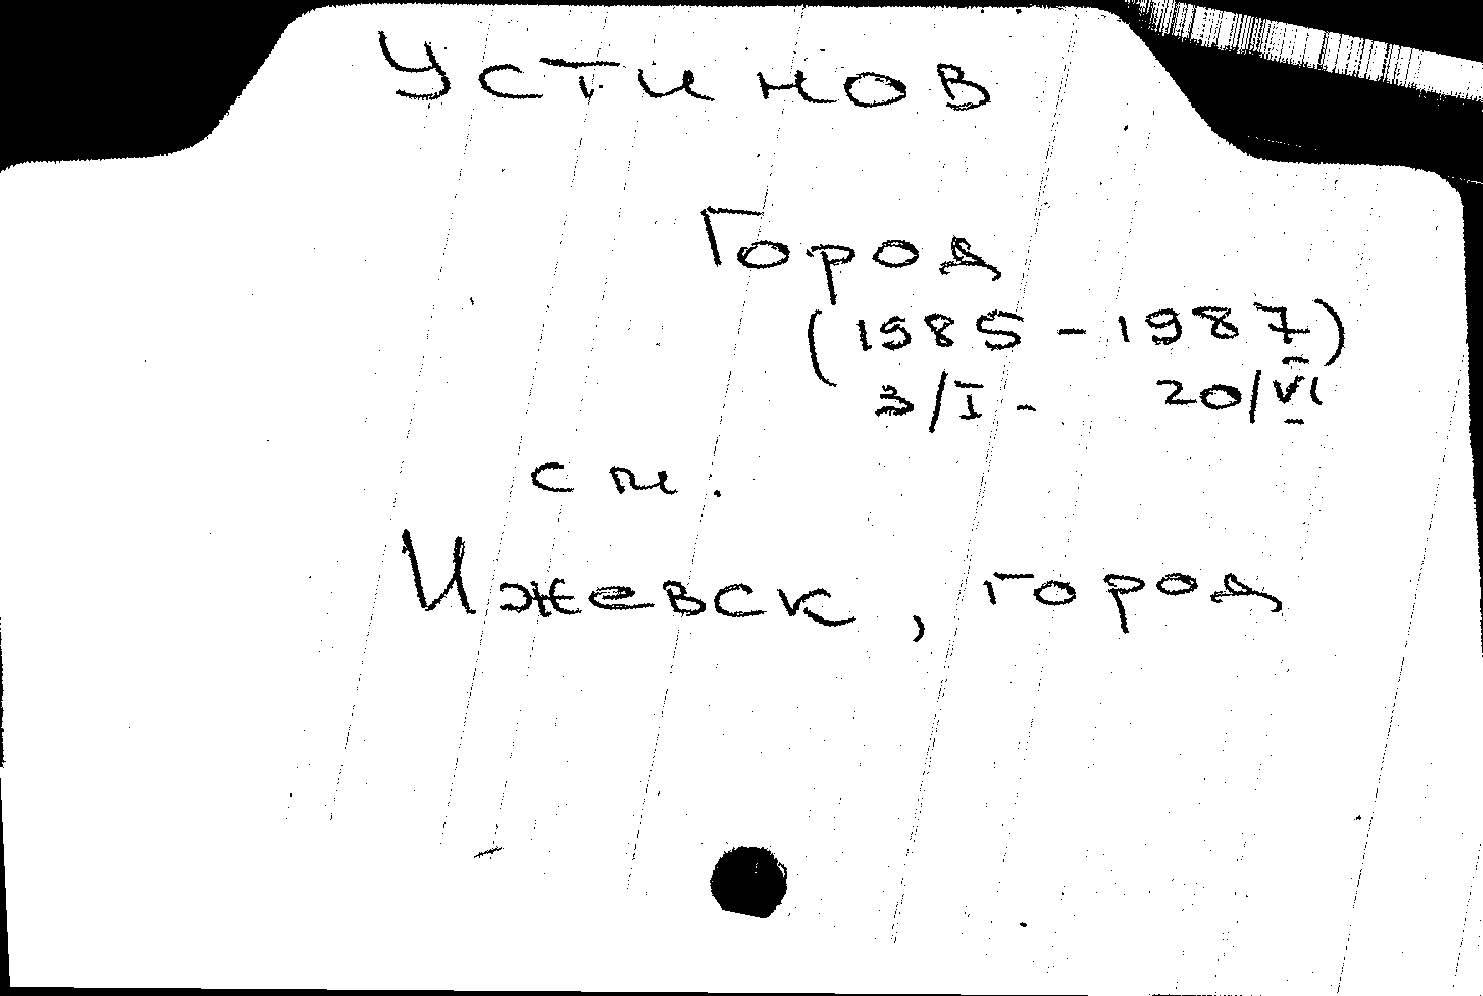 Устинов
Город
(1985 - 1987)
3/I - 20/VI
см.
Ижевск, город